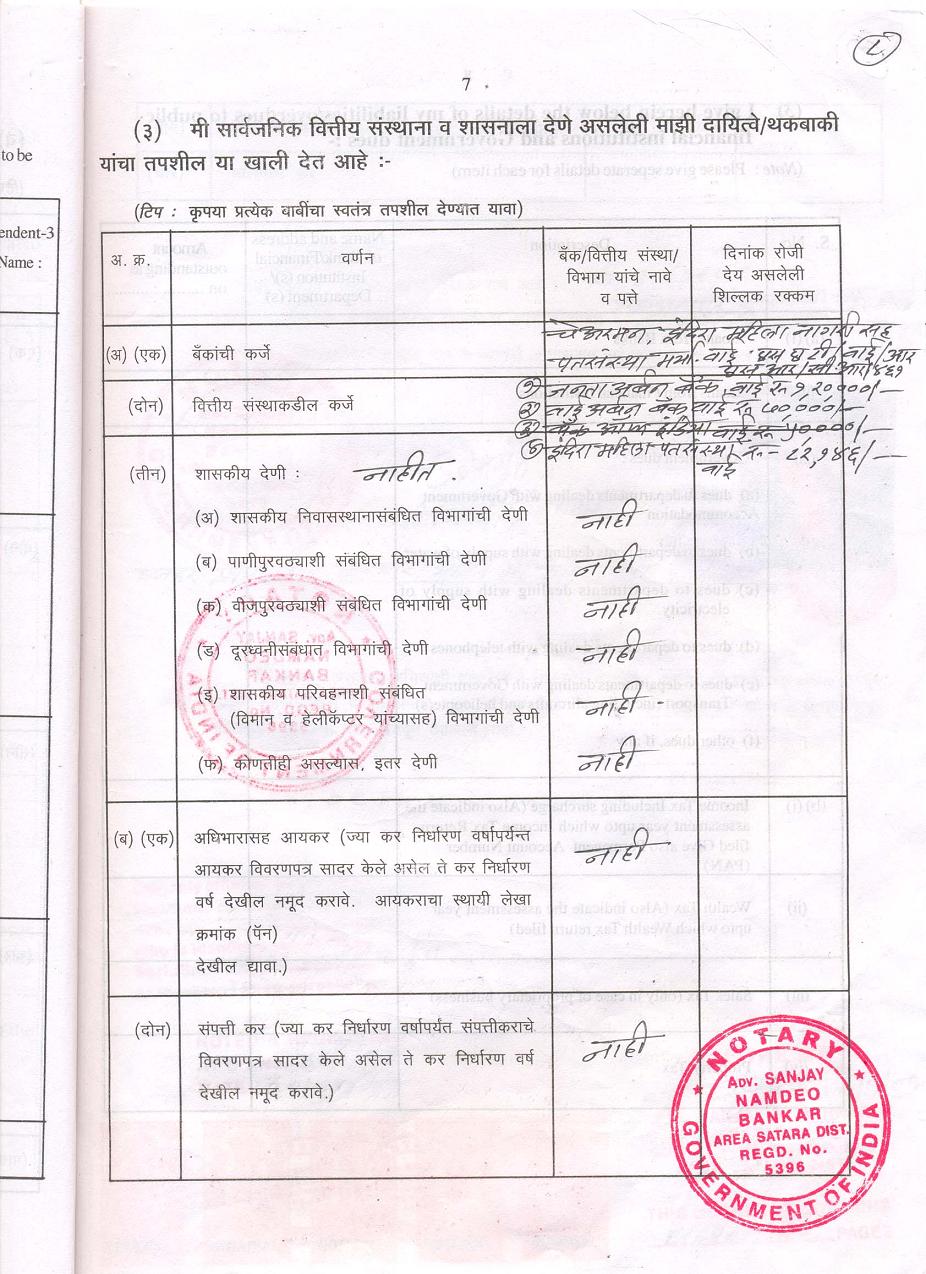 7 .
(३) मी सार्वजनिक वित्तीय संस्थाना व शासनाला देणे असलेली माझी दायित्वे/थकबाकी
यांचा तपशील या खाली देत आहे :-
(टिप : कृपया प्रत्येक बाबींचा स्वतंत्र तपशील देण्यात यावा)
to be
endent-3
Name :
अ. क्र. वर्णन
बँक/वित्तीय संस्था/
विभाग यांचे नावे
व पत्ते
दिनांक रोजी
देय असलेली
शिल्लक रक्कम
(अ) (एक) बँकांची कर्जे
चेअरमन, इंदिरा महिला नागरी सह
पतसंस्था मर्या. वाई
(दोन) वित्तीय संस्थाकडील कर्जे
जनता अर्बन बँक, वाई रु
वाई अर्बन बँक वाई रु ७०,०००/-
बँक ऑफ इंडिया वाई रु
इंदिरा महिला पतसंस्था रु- ८२,१४६/-
वाई
(तीन) शासकीय देणी : नाहीत .
(अ) शासकीय निवासस्थानासंबंधित विभागांची देणी नाही
(ब) पाणीपुरवठ्याशी संबंधित विभागांची देणी नाही
(क) वीजपुरवठ्याशी संबंधित विभागांची देणी नाही
(ड) दूरध्वनीसंबंधात विभागांची देणी नाही
(इ) शासकीय परिवहनाशी संबंधित
(विमान व हेलीकॅप्टर यांच्यासह) विभागांची देणी नाही
(फ) कोणतीही असल्यास, इतर देणी नाही
(ब) (एक) अधिभारासह आयकर (ज्या कर निर्धारण वर्षापर्यन्त नाही
आयकर विवरणपत्र सादर केले असेल ते कर निर्धारण
वर्ष देखील नमूद करावे. आयकराचा स्थायी लेखा
क्रमांक (पॅन)
देखील द्यावा.)
(दोन) संपत्ती कर (ज्या कर निर्धारण वर्षापर्यंत संपत्तीकराचे नाही
विवरणपत्र सादर केले असेल ते कर निर्धारण वर्ष
देखील नमूद करावे.)
NOTARY
ADV. SANJAY
NAMDEO
BANKAR
AREA SATARA DIST.
REGD. No.
5396
GOVERNMENT OF INDIA